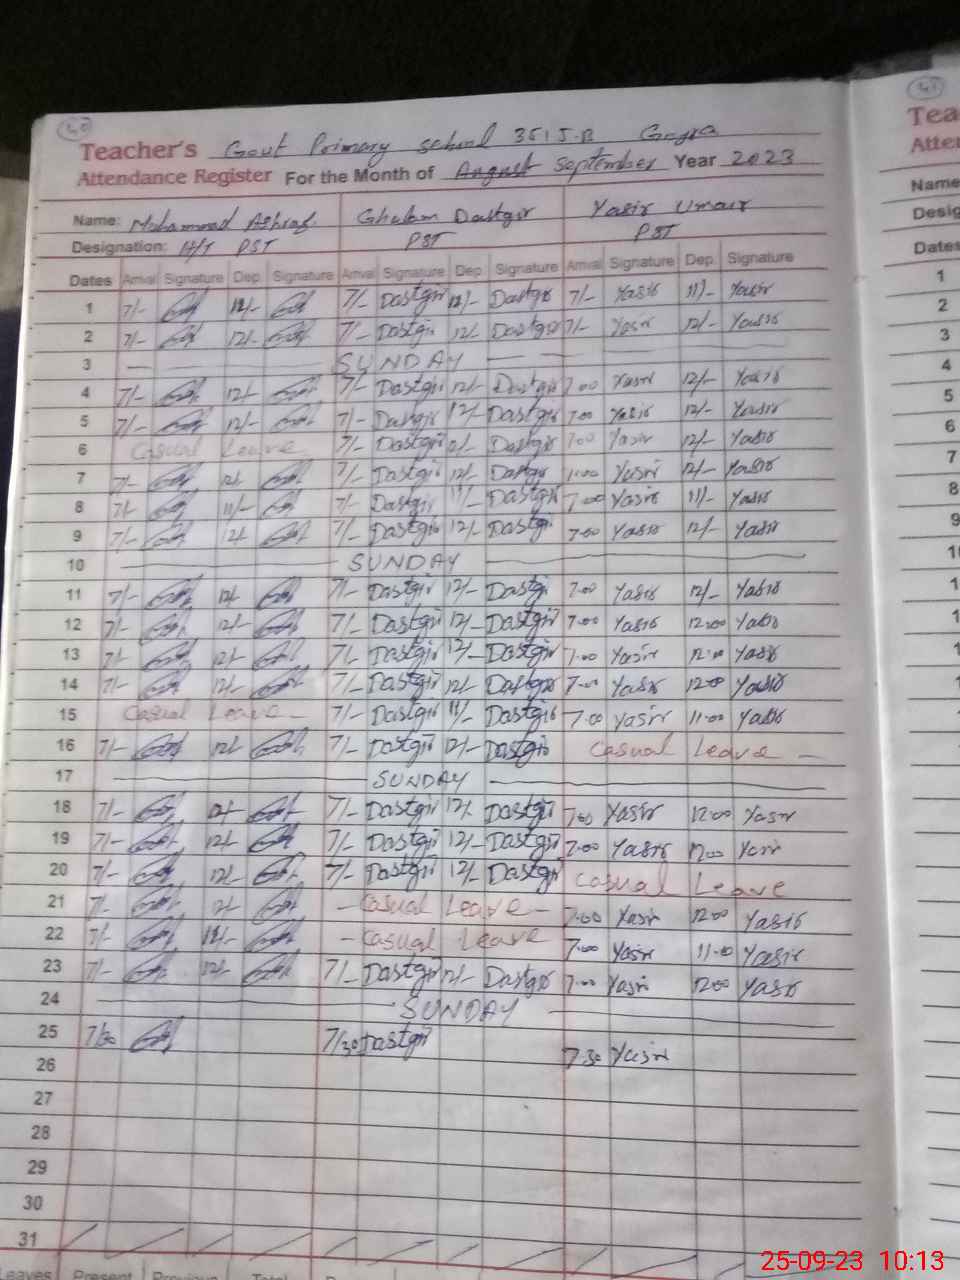 40
41
Teacher's Govt Primary school 351 J.B Gogra
Attendance Register For the Month of August September Year 2023
Name: Muhammad Ashraf Ghulam Dastgir Yasir Umair
Designation: H/T PST PST PST
Dates Arrival Signature Dep. Signature Arrival Signature Dep. Signature Arrival Signature Dep. Signature
1 7/- 7/- Dastgir 12/- Dastgir 7/- Yasir 11/- Yasir
2 7/- 12/- 7/- Dastgir 12/- Dastgir 7/- Yasir 12/- Yasir
3 SUNDAY
4 7/- 12/- 7/- Dastgir 12/- Dastgir 7.00 Yasir 12/- Yasir
5 7/- 12/- 7/- Dastgir 12/- Dastgir 7.00 Yasir 12/- Yasir
6 Casual Leave 7/- Dastgir Dastgir 7.00 Yasir 12/- Yasir
7 7/- 12/- 7/- Dastgir 12/- Dastgir Yasir 12/- Yasir
8 7/- 11/- 7/- Dastgir 11/- Dastgir 7.00 Yasir 11/- Yasir
9 7/- 12/- 7/- Dastgir 12/- Dastgir 7.00 Yasir 12/- Yasir
10 SUNDAY
11 7/- 12/- 7/- Dastgir 12/- Dastgir 7.00 Yasir 12/- Yasir
12 7/- 12/- 7/- Dastgir 12/- Dastgir 7.00 Yasir 12.00 Yasir
13 7/- 12/- 7/- Dastgir 12/- Dastgir 7.00 Yasir 12.00 Yasir
14 7/- 12/- 7/- Dastgir 12/- Dastgir 7.00 Yasir 12.00 Yasir
15 Casual Leave 7/- Dastgir 11/- Dastgir 7.00 Yasir 11.00 Yasir
16 7/- 12/- 7/- Dastgir 12/- Dastgir Casual Leave
17 SUNDAY
18 7/- 12/- 7/- Dastgir 12/- Dastgir 7.00 Yasir 12.00 Yasir
19 7/- 12/- 7/- Dastgir 12/- Dastgir 7.00 Yasir 12.00 Yasir
20 7/- 12/- 7/- Dastgir 12/- Dastgir Casual Leave
21 7/- 12/- Casual Leave 7.00 Yasir 12.00 Yasir
22 7/- Casual Leave 7.00 Yasir 11.00 Yasir
23 7/- 12/- 7/- Dastgir 12/- Dastgir 7.00 Yasir 12.00 Yasir
24 SUNDAY
25 7/30 7/30 Dastgir 7.30 Yasir
26
27
28
29
30
31
Leaves Present Previous Total
Name
Dates
1
2
3
4
5
6
7
8
9
25-09-23 10:13